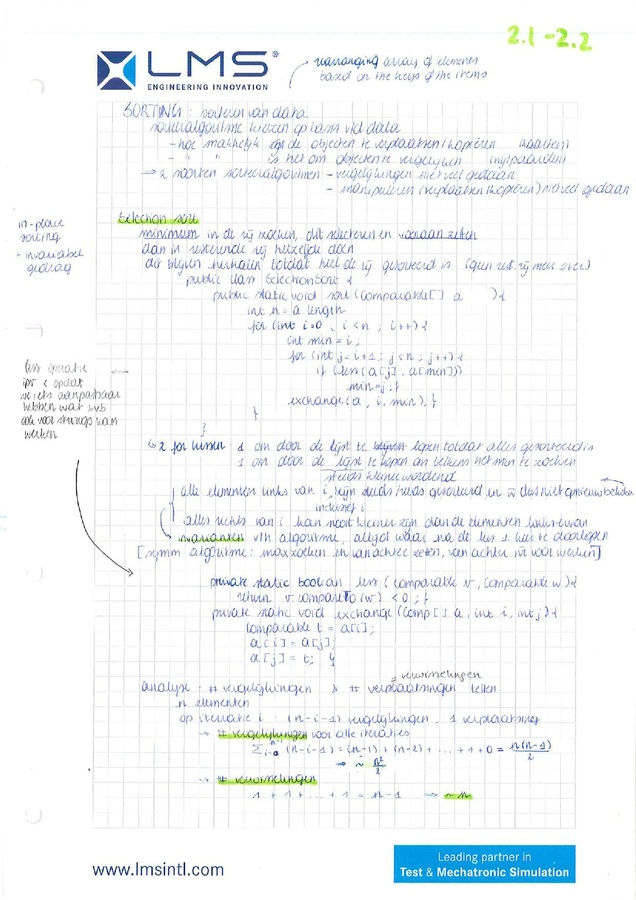 2.1 - 2.2
LMS
ENGINEERING INNOVATION
rearranging array of elements
based on the keys of the items
SORTING : sorteren van data
sorteeralgoritme kiezen op basis v/d data
- hoe makkelijk de objecten te verplaatsen/kopiëren (kaarten)
- " " is het om objecten te vergelijken
→ 2 soorten sorteeralgoritmen - vergelijkingen niet veel gedaan
- manipuleren (verplaatsen/kopiëren) niet veel gedaan
in-place
sorting
+ invariabel
gedrag
Selection sort
minimum in de rij zoeken, dit selecteren en vooraan zetten
dan in resterende rij hetzelfde doen
dit blijven herhalen totdat heel de rij gesorteerd is (geen rest. rij meer over)
public class SelectionSort {
public static void sort (Comparable[] a ) {
int n = a.length
for (int i=0 , i<n , i++) {
int min = i,
for (int j=i+1; j<n; j++) {
if (less(a[j], a[min]))
min=j; {
exchange(a, i, min), }
}
}
less operatie
ipv < opdat
we iets aanpasbaar
hebben wat bvb
ook voor strings kan
werken
↳ 2 for lussen 1 om door de lijst te lopen totdat alles gesorteerd is
1 om door de lijst te lopen om telkens het min te zoeken
steeds kleiner wordend
alle elementen links van i, zijn steeds reeds gesorteerd en dus niet opnieuw
inclusief i
alles rechts van i kan nooit kleiner zijn dan de elementen links ervan
invarianten v/h algoritme, altijd waar na de lus 1 keer te doorlopen
[symm algoritme : max zoeken en van achter zetten, van achter voor werken]
private static boolean less (Comparable v, Comparable w) {
return v.compareTo(w) < 0 ; }
private static void exchange (Comp[] a, int i, int j) {
Comparable t = a[i];
a[i] = a[j];
a[j] = t; }
= verwisselingen
Analyse : # vergelijkingen & # verplaatsingen tellen
n elementen
op iteratie i : (n-i-1) vergelijkingen, 1 verplaatsing
→ # vergelijkingen voor alle iteraties
∑ (n-i-1) = (n-1) + (n-2) + ... + 1 + 0 = n(n-1)/2
⇒ ~ n²/2
→ # verwisselingen
1 + 1 + ... + 1 = n-1 ⇒ ~ n
www.lmsintl.com
Leading partner in
Test & Mechatronic Simulation